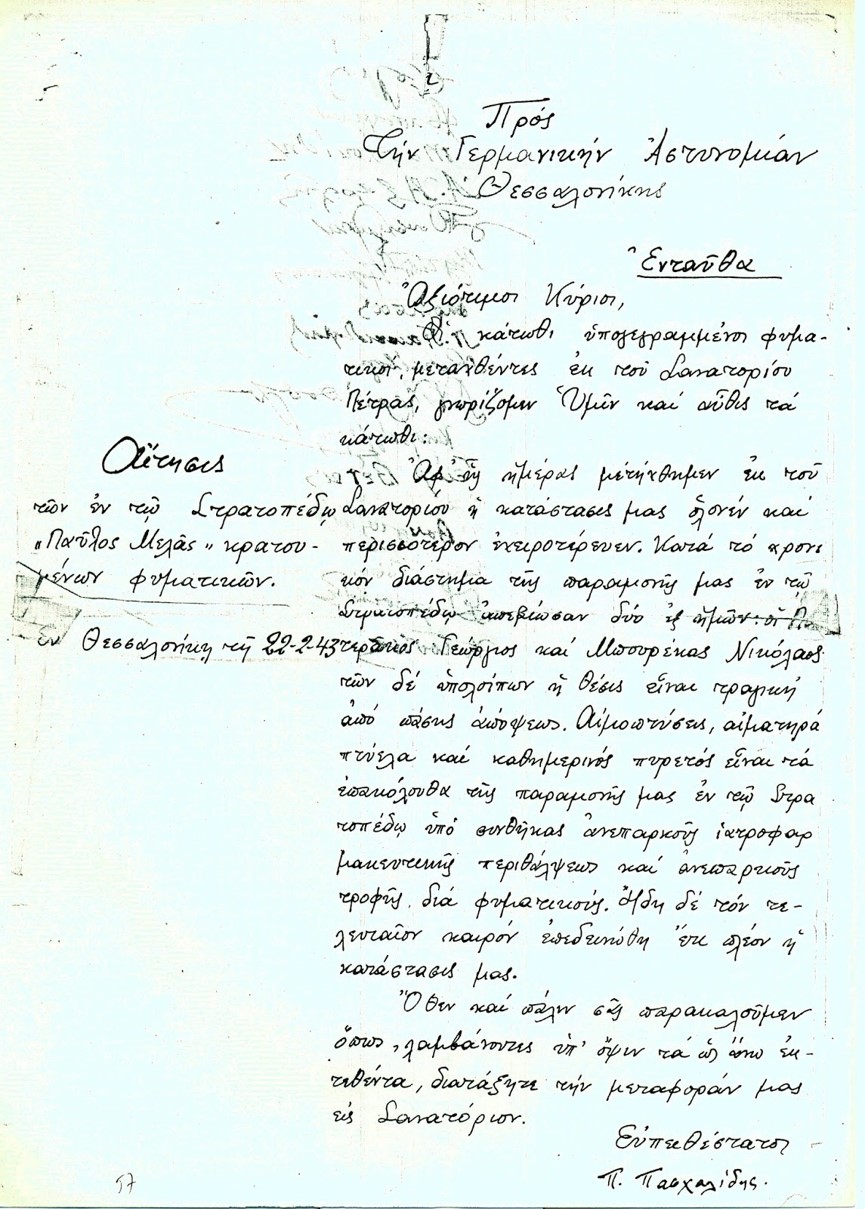 Πρός
Τήν Γερμανικήν Ἀστυνομίαν
Θεσσαλονίκης
Ἐνταῦθα
Ἀξιότιμοι Κύριοι,
Οἱ κάτωθι ὑπογεγραμμένοι φυμα-
τικοί, μεταχθέντες ἐκ τοῦ Σανατορίου
Πέτρας, γνωρίζομεν Ὑμῖν καί αὖθις τά
κάτωθι:
Αἴτησις
τῶν ἐν τῷ Στρατοπέδῳ
"Παῦλος Μελᾶς" κρατου-
μένων φυματικῶν.
Ἐν Θεσσαλονίκῃ τῇ 22-2-43
Ἀφ' ἧς ἡμέρας μετήχθημεν ἐκ τοῦ
Σανατορίου ἡ κατάστασις μας ὁλονέν καί
περισσότερον ἐχειροτέρευεν. Κατά τό χρονι
κόν διάστημα τῆς παραμονῆς μας ἐν τῷ
Στρατοπέδῳ ἀπεβίωσαν δύο ἐξ ἡμῶν: οἱ
Γεώργιος καί Μπουρέκας Νικόλαος
τῶν δέ ὑπολοίπων ἡ θέσις εἶναι τραγική
ἀπό πάσης ἀπόψεως. Αἱμοπτύσεις, αἱματηρά
πτύελα καί καθημερινός πυρετός εἶναι τά
ἐπακόλουθα τῆς παραμονῆς μας ἐν τῷ Στρα
τοπέδῳ ὑπό συνθήκας ἀνεπαρκοῦς ἰατροφαρ
μακευτικῆς περιθάλψεως καί ἀνεπαρκοῦς
τροφῆς διά φυματικούς. Ἤδη δέ τόν τε-
λευταῖον καιρόν ἐπεδεινώθη ἔτι πλέον ἡ
κατάστασις μας.
Ὅθεν καί πάλιν σᾶς παρακαλοῦμεν
ὅπως, λαμβάνοντες ὑπ' ὄψιν τά ὡς ἄνω ἐκ-
τεθέντα, διατάξητε τήν μεταφοράν μας
εἰς Σανατόριον.
Εὐπειθέστατοι
Π. Πασχαλίδης.
57